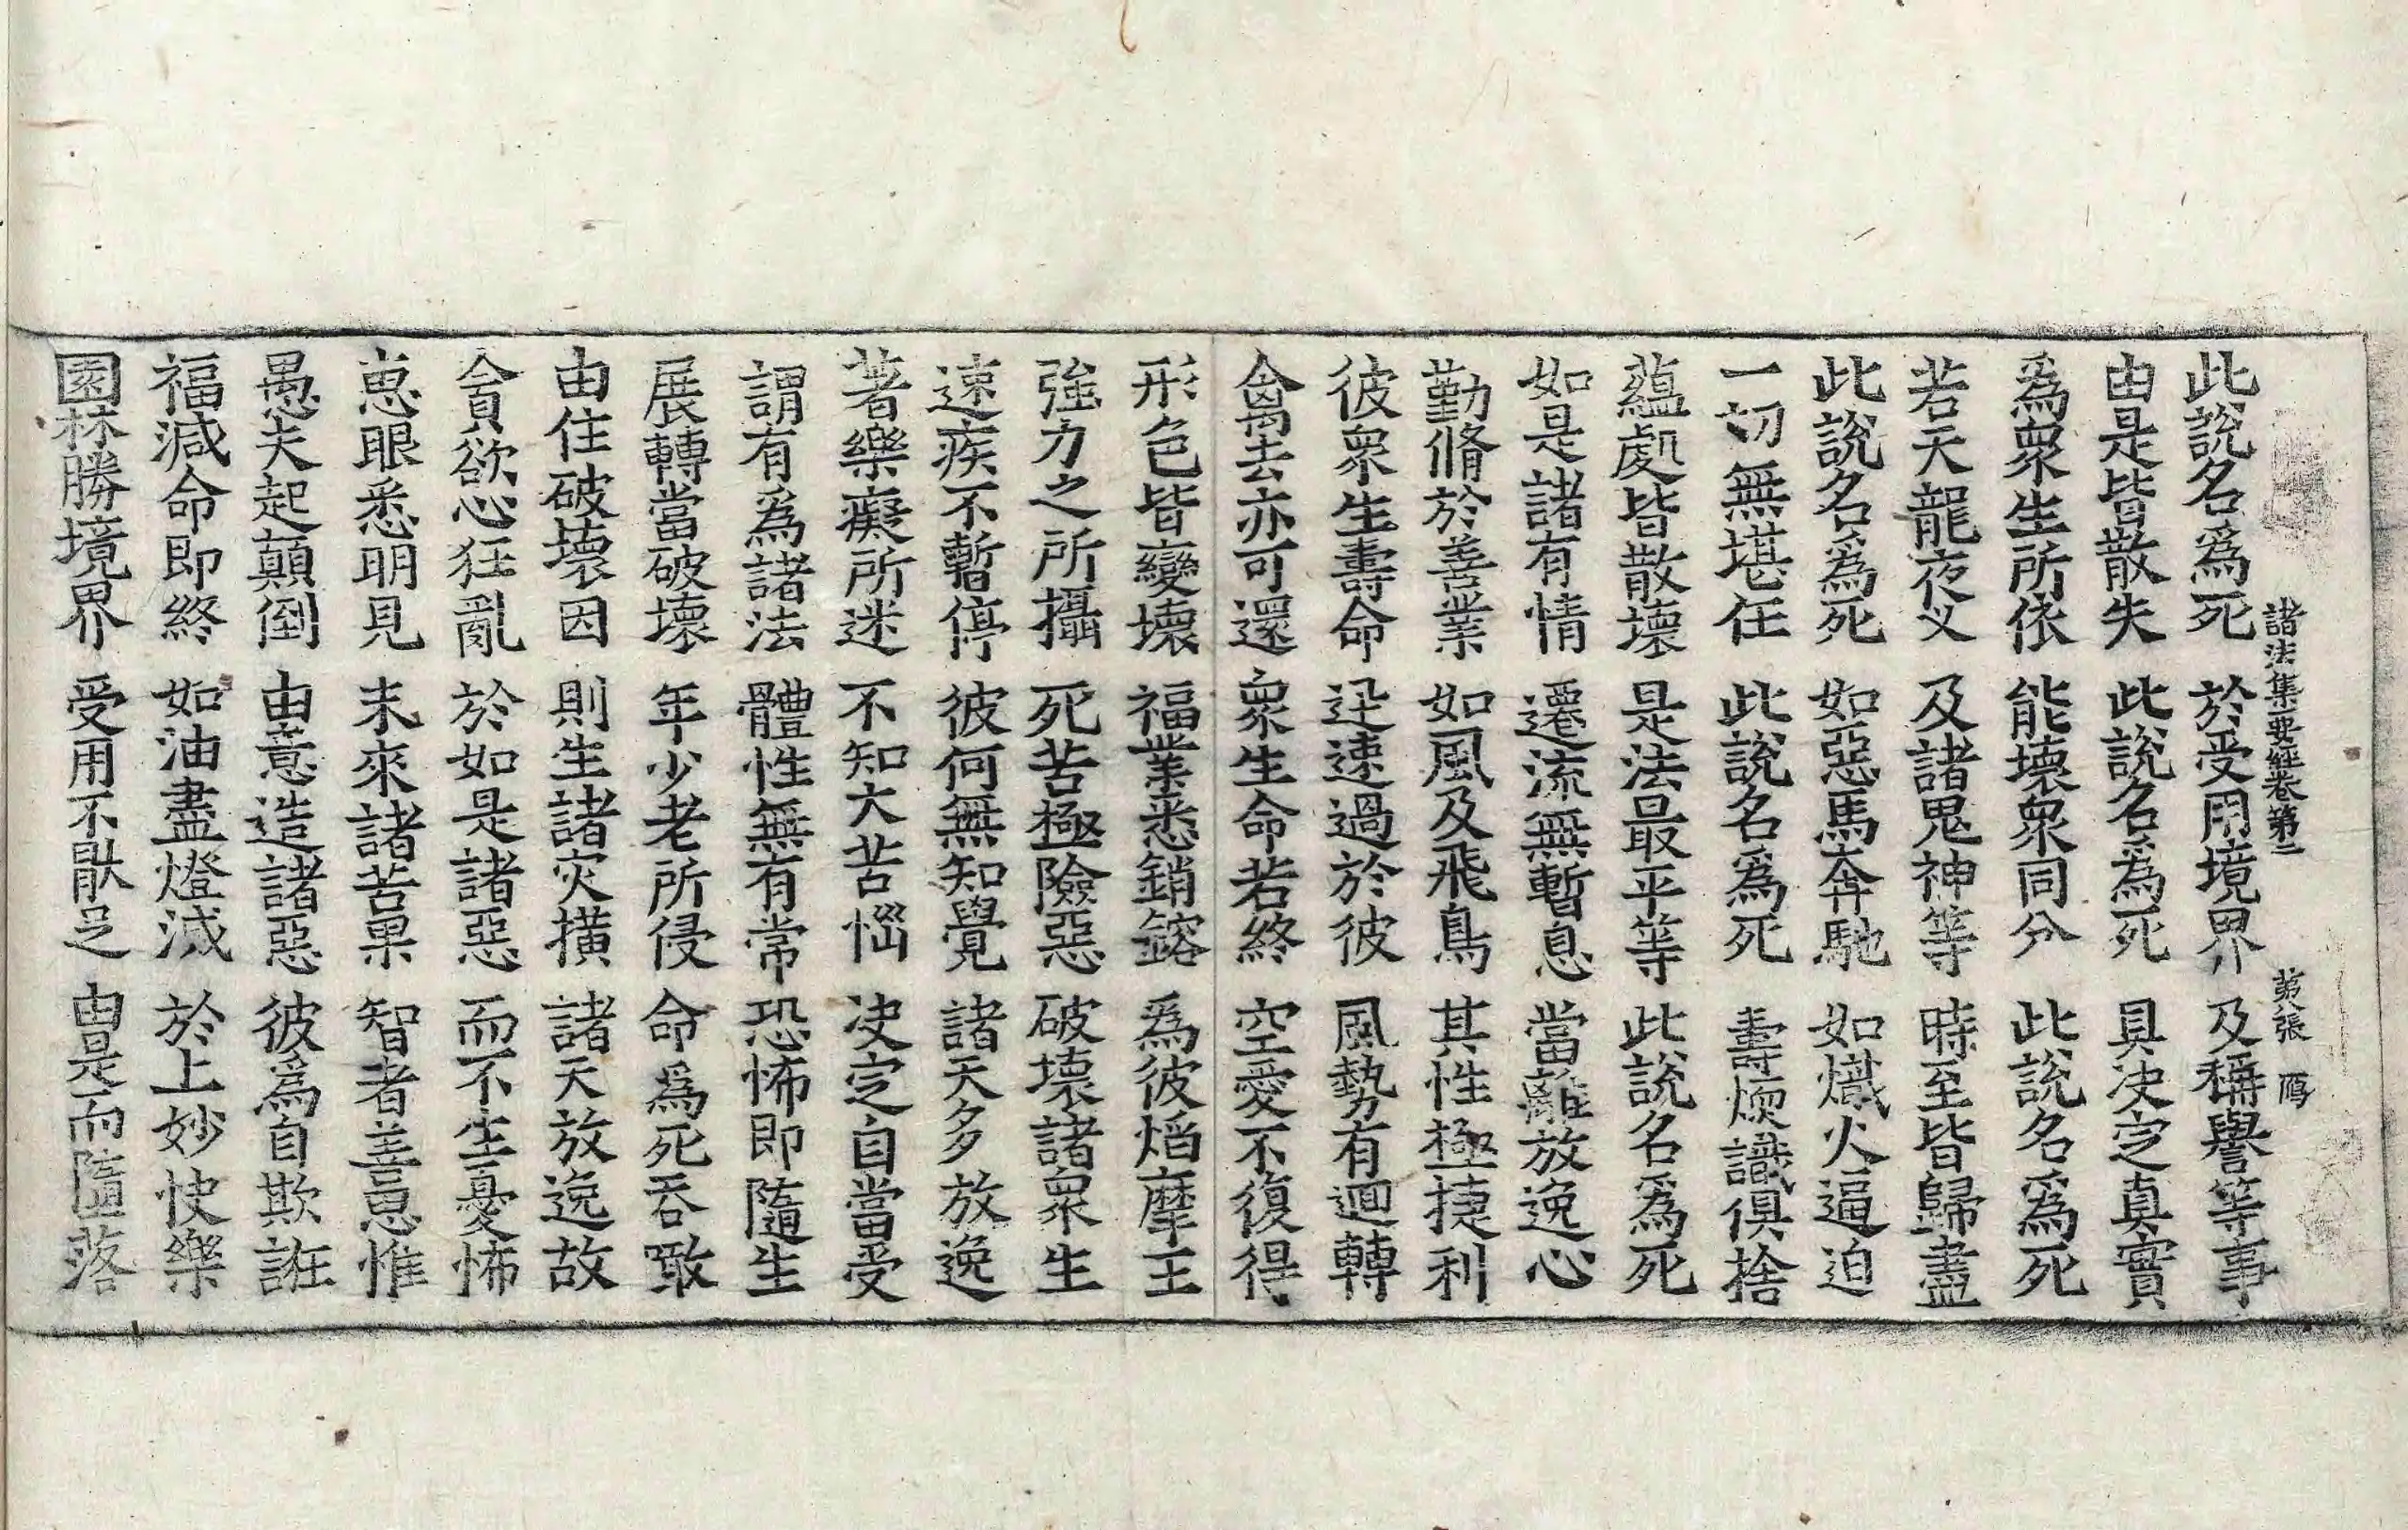 諸法集要經卷第二 第八張 鴈
此說名爲死 於受用境界 及稱譽等事
由是皆散失 此說名爲死 具决定真實
爲衆生所依 能壞衆同分 此說名爲死
若天龍夜叉 及諸鬼神等 時至皆歸盡
此說名爲死 如惡馬奔馳 如熾火逼迫
一切無堪任 此說名爲死 壽煗識俱捨
蘊處皆散壞 是法最平等 此說名爲死
如是諸有情 遷流無暫息 當離放逸心
勤脩於善業 如風及飛鳥 其性極捷利
彼衆生壽命 迅速過於彼 風勢有迴轉
禽去亦可還 衆生命若終 空愛不復得
形色皆變壞 福業悉銷鎔 爲彼焰摩王
強力之所攝 死苦極險惡 破壞諸衆生
速疾不暫停 彼何無知覺 諸天多放逸
著樂癡所迷 不知大苦惱 决定自當受
謂有爲諸法 體性無有常 恐怖即隨生
展轉當破壞 年少老所侵 命爲死吞噉
由住破壞因 則生諸灾橫 諸天放逸故
貪欲心狂亂 於如是諸惡 而不生憂怖
恵眼悉明見 未來諸苦果 智者善思惟
愚夫起顛倒 由意造諸惡 彼爲自欺誑
福減命即終 如油盡燈滅 於上妙快樂
園林勝境界 受用不猒足 由是而隨落